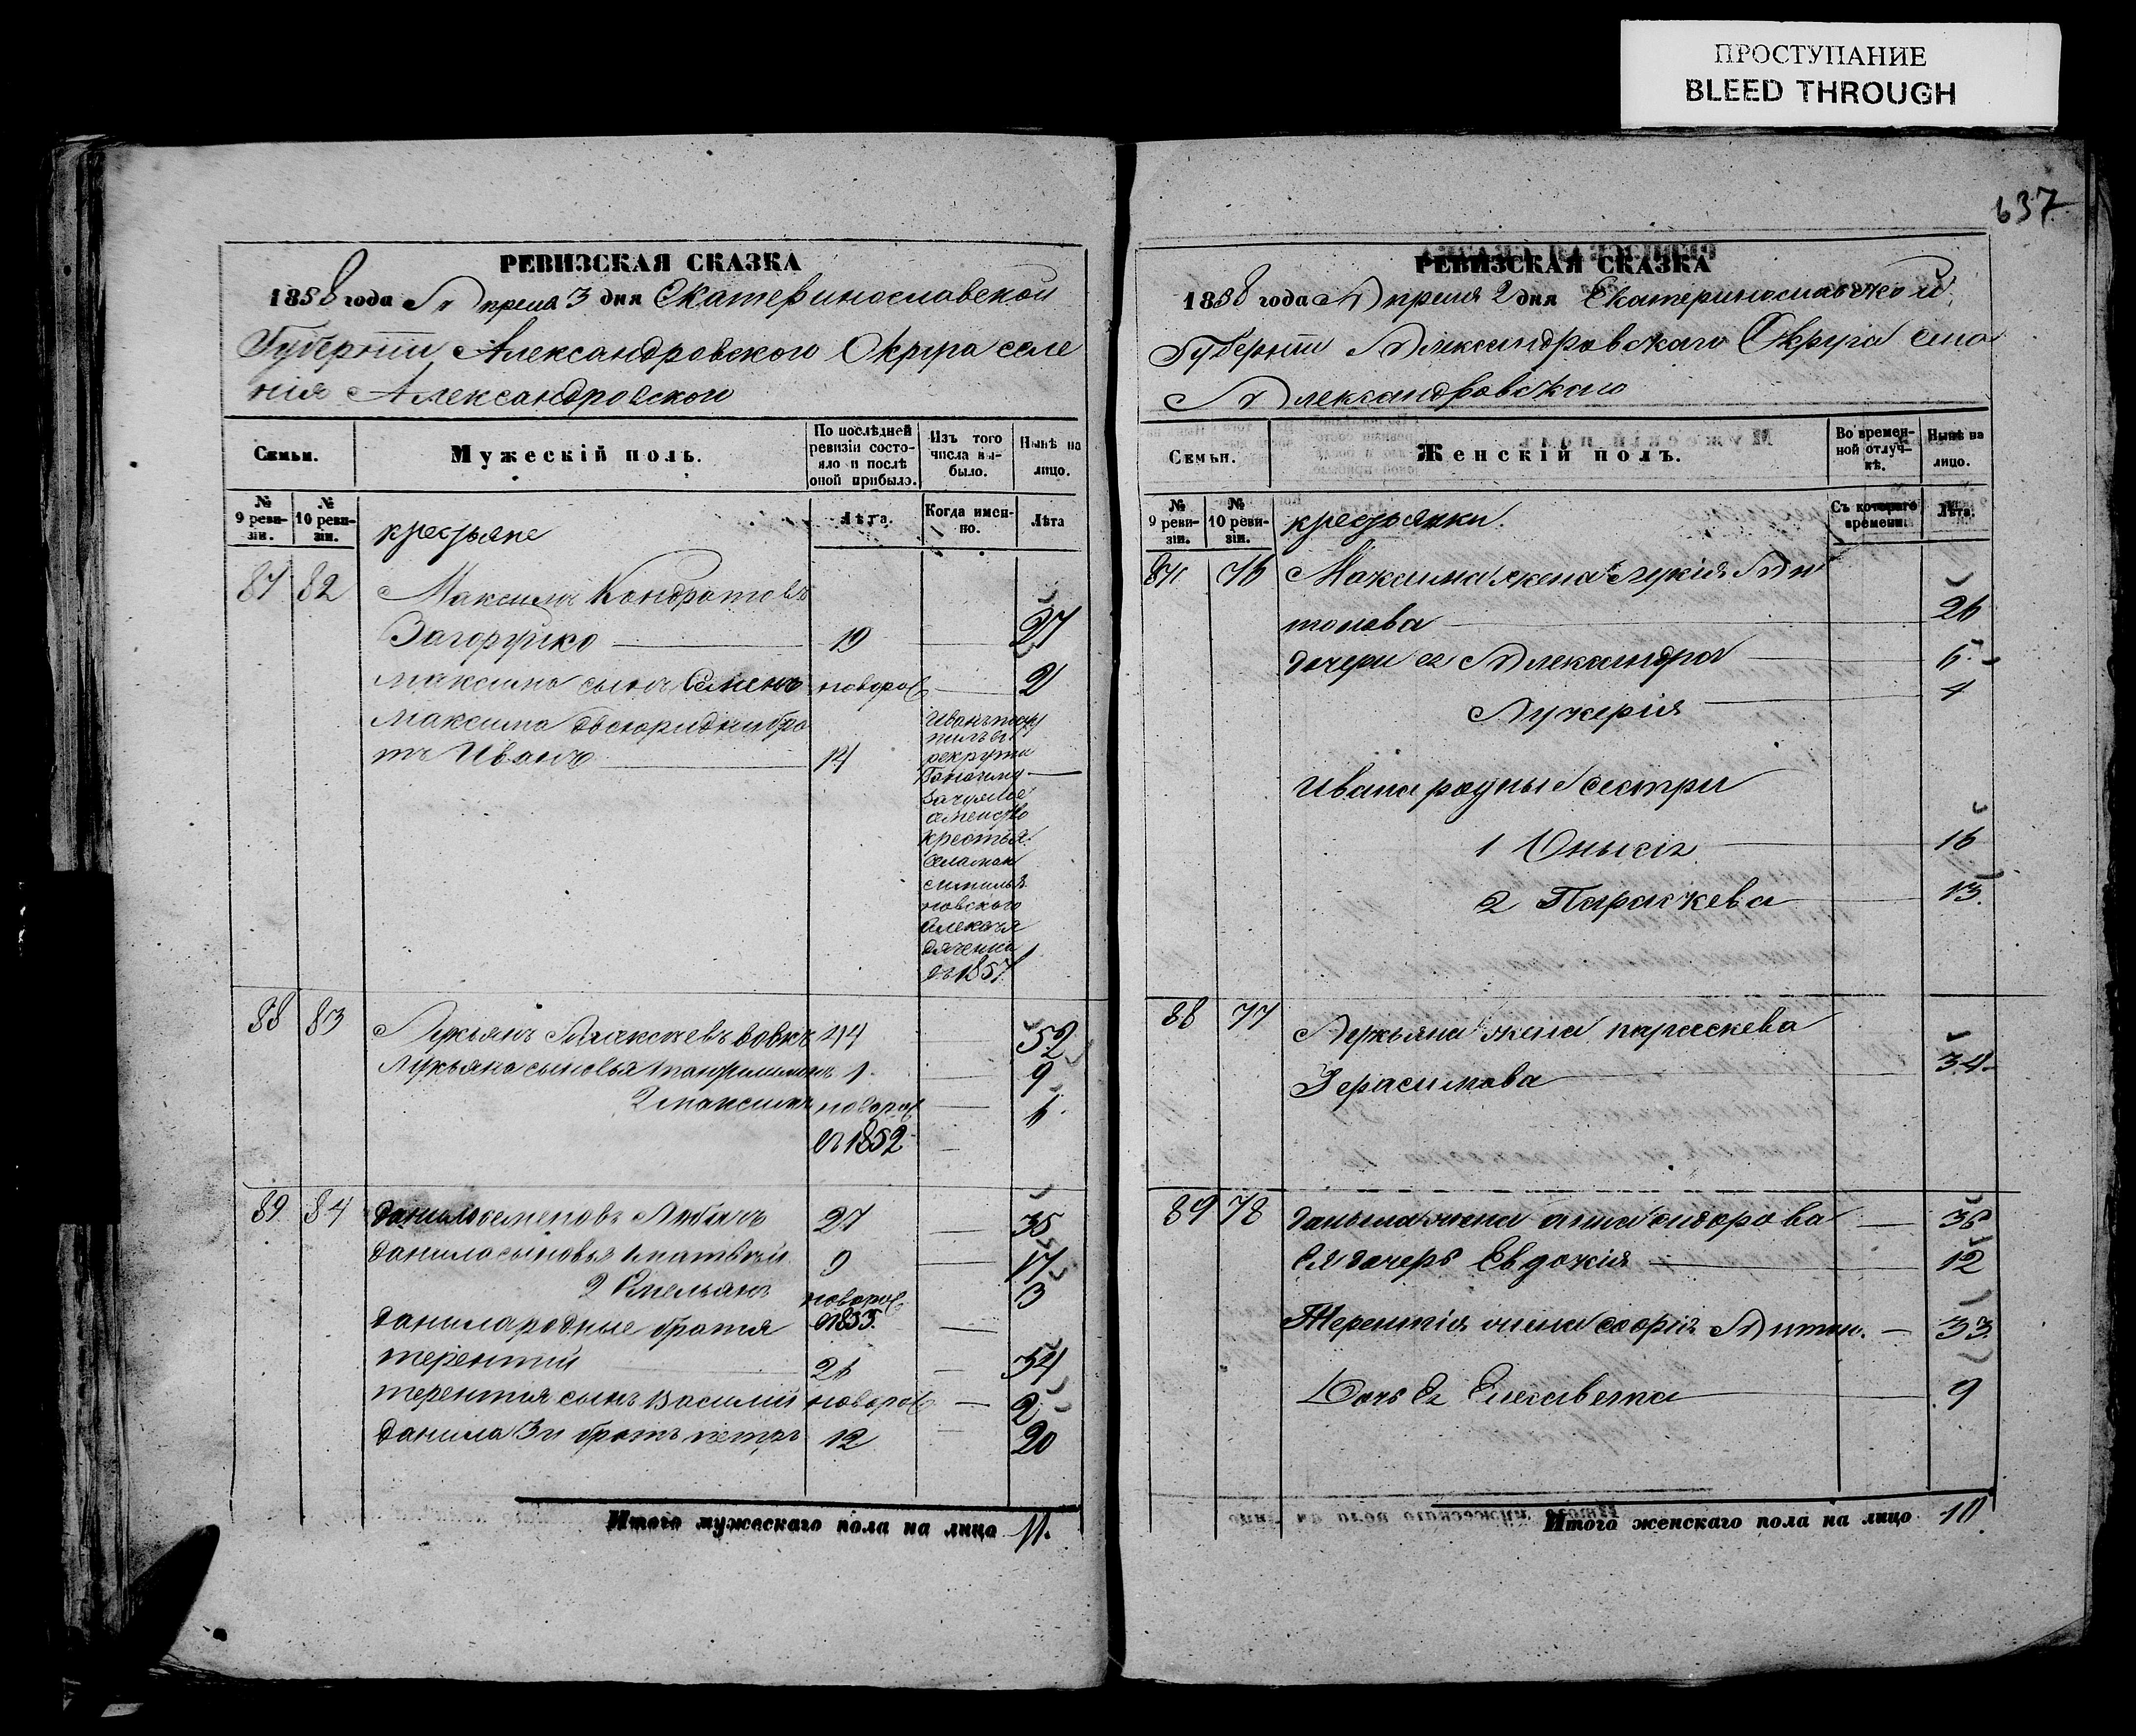 ПРОСТУПАНИЕ
BLEED THROUGH
637
РЕВИЗСКАЯ СКАЗКА
1858 года Апреля 3 дня Екатеринославской
Губернии Александровского Округа селе
нія Александровской
Семьи.
Мужескій полъ.
По послѣдней ревизіи состо-
яло и послѣ
оной прибыло.
Изъ того
числа вы-
было.
Нынѣ на
лицо.
№
9 реви-
зіи.
№
10 реви-
зіи.
крестьяне
Лѣта.
Когда имен-
но.
Лѣта
87 82 Максимъ Кондратовъ
Загорулко 19 27
Максима сынъ Семенъ новорож 2
Максима двоюридний бра
тъ Иванъ 14
Иванъ
рекрути
семейство
крестья
новского
въ 1857
88 83 Лукьянъ Алексеевъ вовкъ 44 52
Лукьяна сыновья 1 9
2 Максимъ новорож 6
въ 1852
89 84 Данило Семеновъ 27 35
Данила сыновья 1 Матвей 9 17
2 Емельянъ новорож 3
въ 1855.
Данила родные братья
терентий 26 34
терентия сынъ Василий новорож 2
Данила 3й братъ петръ 12 20
Итого мужескаго пола на лицо 11.
РЕВИЗСКАЯ СКАЗКА
1858 года Апреля 2 дня Екатеринославской
Губернии Александровскаго Округа села
Александровскаго
Семьи.
Женскій полъ.
Во времен-
ной отлуч-
кѣ.
Нынѣ на
лицо.
№
9 реви-
зіи.
№
10 реви-
зіи.
крестьянки.
Съ котораго
времени.
Лѣта.
87 76 Максима жена Лукія Ан
тонова 26
дочери ея Александра 6
Лукерия 4
Ивана родные сестри
1 Онысія 16
2 Параскева 13.
88 77 Лукьяна жена параскева
Герасимова 34
89 78 Данила жена анна сидорова 36
Ея дочерь Евдокія 12
Терентія жена софія Антон. 33
Дочь Ея Елисавета 9
Итого женскаго пола на лицо 10